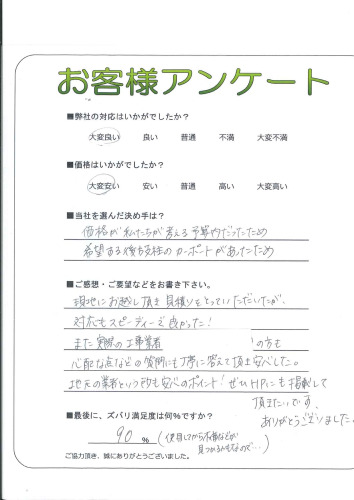 お客様アンケート
■弊社の対応はいかがでしたか?
大変良い 良い 普通 不満 大変不満
■価格はいかがでしたか?
大変安い 安い 普通 高い 大変高い
■当社を選んだ決め手は?
価格が私たちが考える予算内だったため
希望する後方支柱のカーポートがあったため
■ご感想・ご要望などをお書き下さい。
現地にお越し頂き見積りをとっていただいたが、
対応もスピーディーで良かった!
また実際の工事業者 の方も
心配な点などの質問にも丁寧に答えて頂き安心した。
地元の業者という所も安心のポイント!ぜひHPにも掲載して
頂きたいです。
ありがとうございました。
■最後に、ズバリ満足度は何%ですか?
90 % (使用してから不備などが
見つかるかもなので…)
ご協力頂き、誠にありがとうございました。